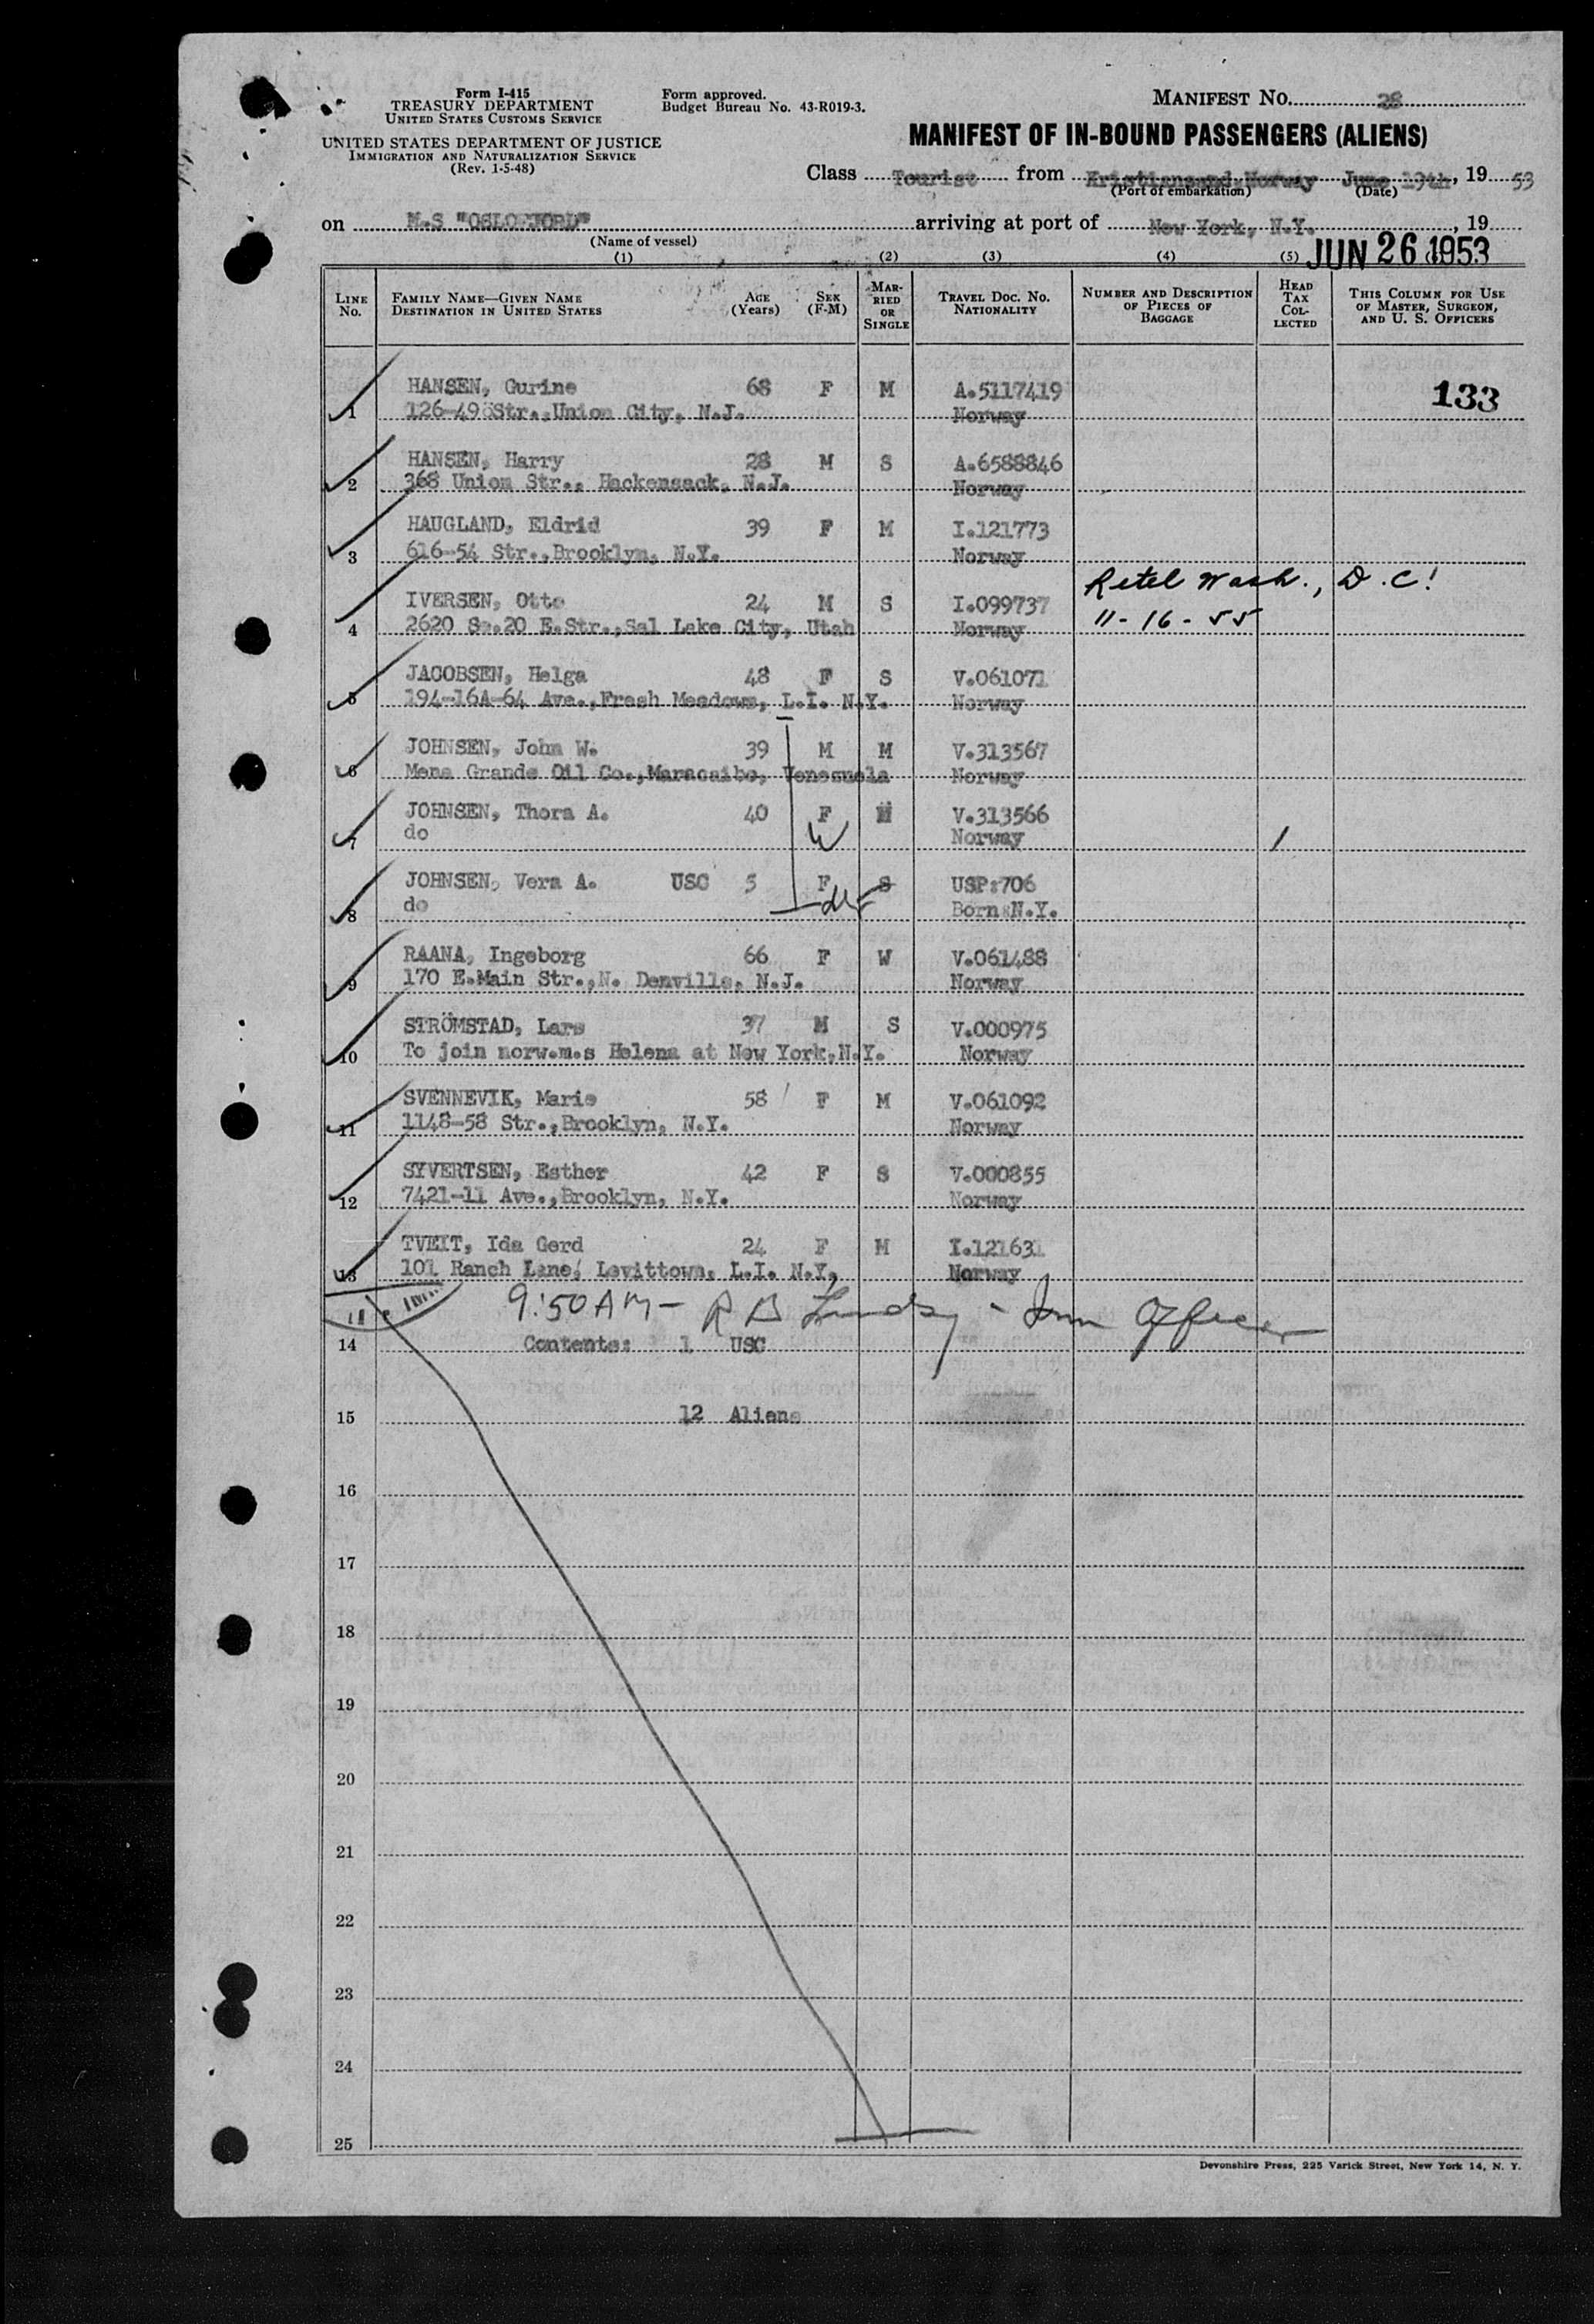 Form I-415
TREASURY DEPARTMENT
UNITED STATES CUSTOMS SERVICE
UNITED STATES DEPARTMENT OF JUSTICE
IMMIGRATION AND NATURALIZATION SERVICE
(Rev. 1-5-48)
Form approved.
Budget Bureau No. 43-R019-3.
MANIFEST NO. 28
MANIFEST OF IN-BOUND PASSENGERS (ALIENS)
Class Tourist from Kristiansand, Norway June 19th, 19 53
(Port of embarkation) (Date)
on M.S "OSLOFJORD" arriving at port of New York, N.Y., 19
(Name of vessel)
JUN 26 1953
(1) (2) (3) (4) (5)
LINE NO. FAMILY NAME—GIVEN NAME DESTINATION IN UNITED STATES AGE (Years) SEX (F-M) MARRIED OR SINGLE TRAVEL DOC. NO. NATIONALITY NUMBER AND DESCRIPTION OF PIECES OF BAGGAGE HEAD TAX COLLECTED THIS COLUMN FOR USE OF MASTER, SURGEON, AND U. S. OFFICERS
HANSEN, Gurine 68 F M A.5117419 133
1 126-49 Str., Union City, N.J. Norway
HANSEN, Harry 28 M S A.6588846
2 368 Union Str., Hackensack, N.J. Norway
HAUGLAND, Eldrid 39 F M I.121773
3 616-54 Str., Brooklyn, N.Y. Norway
Retel Wash., D.C!
IVERSEN, Otto 24 M S I.099737 11-16-55
4 2620 So.20 E.Str., Sal Lake City, Utah Norway
JACOBSEN, Helga 48 F S V.061071
5 194-16A-64 Ave., Fresh Meadows, L.I. N.Y. Norway
JOHNSEN, John W. 39 M M V.313567
6 Mena Grande Oil Co., Maracaibo, Venesuela Norway
JOHNSEN, Thora A. 40 F M V.313566
7 do W Norway /
JOHNSEN, Vera A. USC 5 F S USP:706
8 do Born:N.Y.
RAANA, Ingeborg 66 F W V.061488
9 170 E.Main Str., N. Denville, N.J. Norway
STRÖMSTAD, Lars 37 M S V.000975
10 To join norw.m.s Helena at New York, N.Y. Norway
SVENNEVIK, Marie 58 F M V.061092
11 1148-58 Str., Brooklyn, N.Y. Norway
SYVERTSEN, Esther 42 F S V.000855
12 7421-11 Ave., Brooklyn, N.Y. Norway
TVEIT, Ida Gerd 24 F M I.121631
13 101 Ranch Lane, Levittown, L.I. N.Y. Norway
9:50 AM - R B Lindsy - Imm Officer
14 Contents: 1 USC
15 12 Aliens
16
17
18
19
20
21
22
23
24
25
Devonshire Press, 225 Varick Street, New York 14, N. Y.